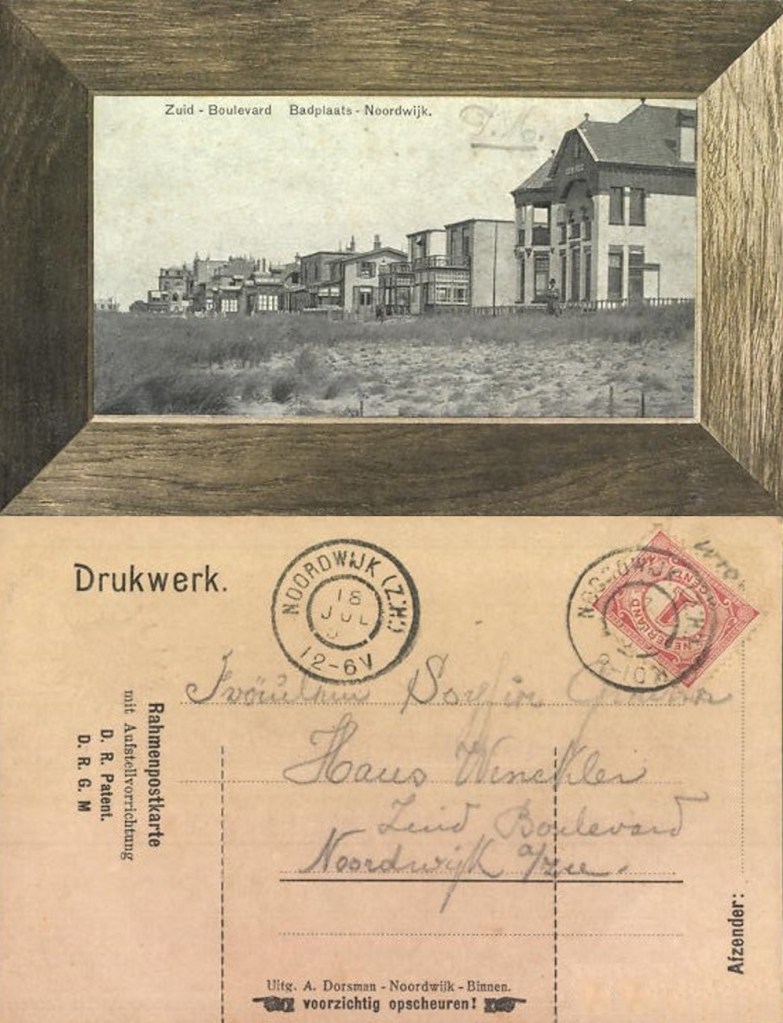 Zuid - Boulevard Badplaats - Noordwijk.
Drukwerk.
NOORDWIJK (Z.H.)
18
JUL
12-6V
NOORDWIJK
8-10
NEDERLAND
1
Fräulein Sophie
Haus Winckler
Zuid Boulevard
Noordwijk a/zee.
Rahmenpostkarte
mit Aufstellvorrichtung
D. R. Patent.
D. R. G. M
Afzender:
Uitg. A. Dorsman - Noordwijk - Binnen.
voorzichtig opscheuren!